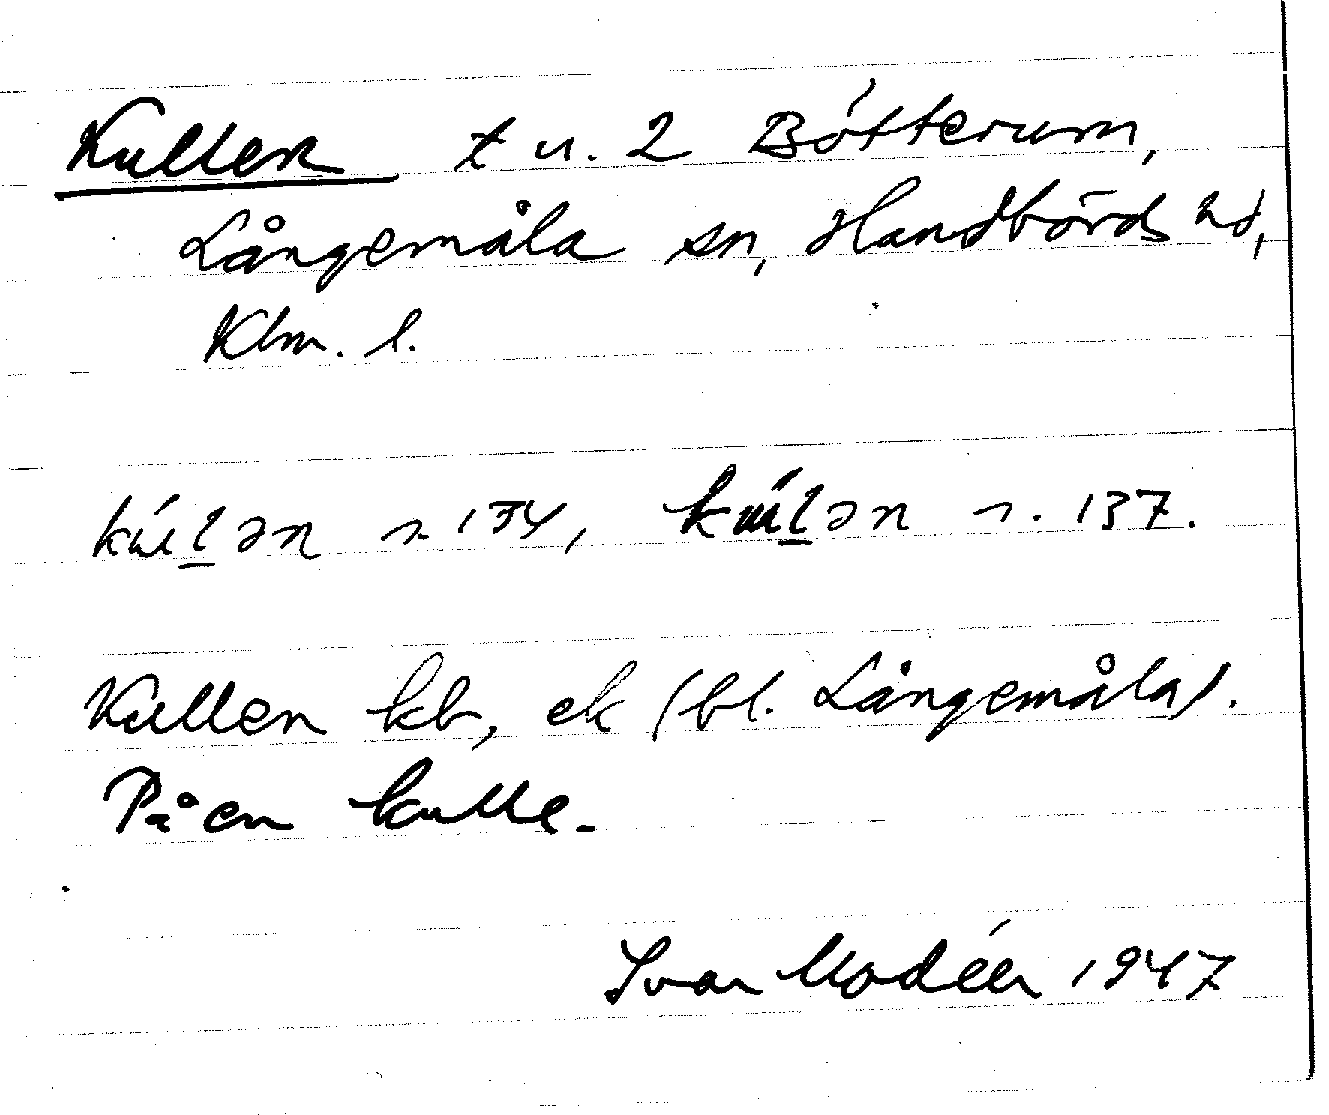 Kullen t u. 2 Bötterum,
Långemåla sn, Handbörds hd,
Klm. l.
kúḻən s. 134, kúḻən s. 137.
Kullen kb, ek (bl. Långemåla).
På en kulle.
Ivar Modéer 1947